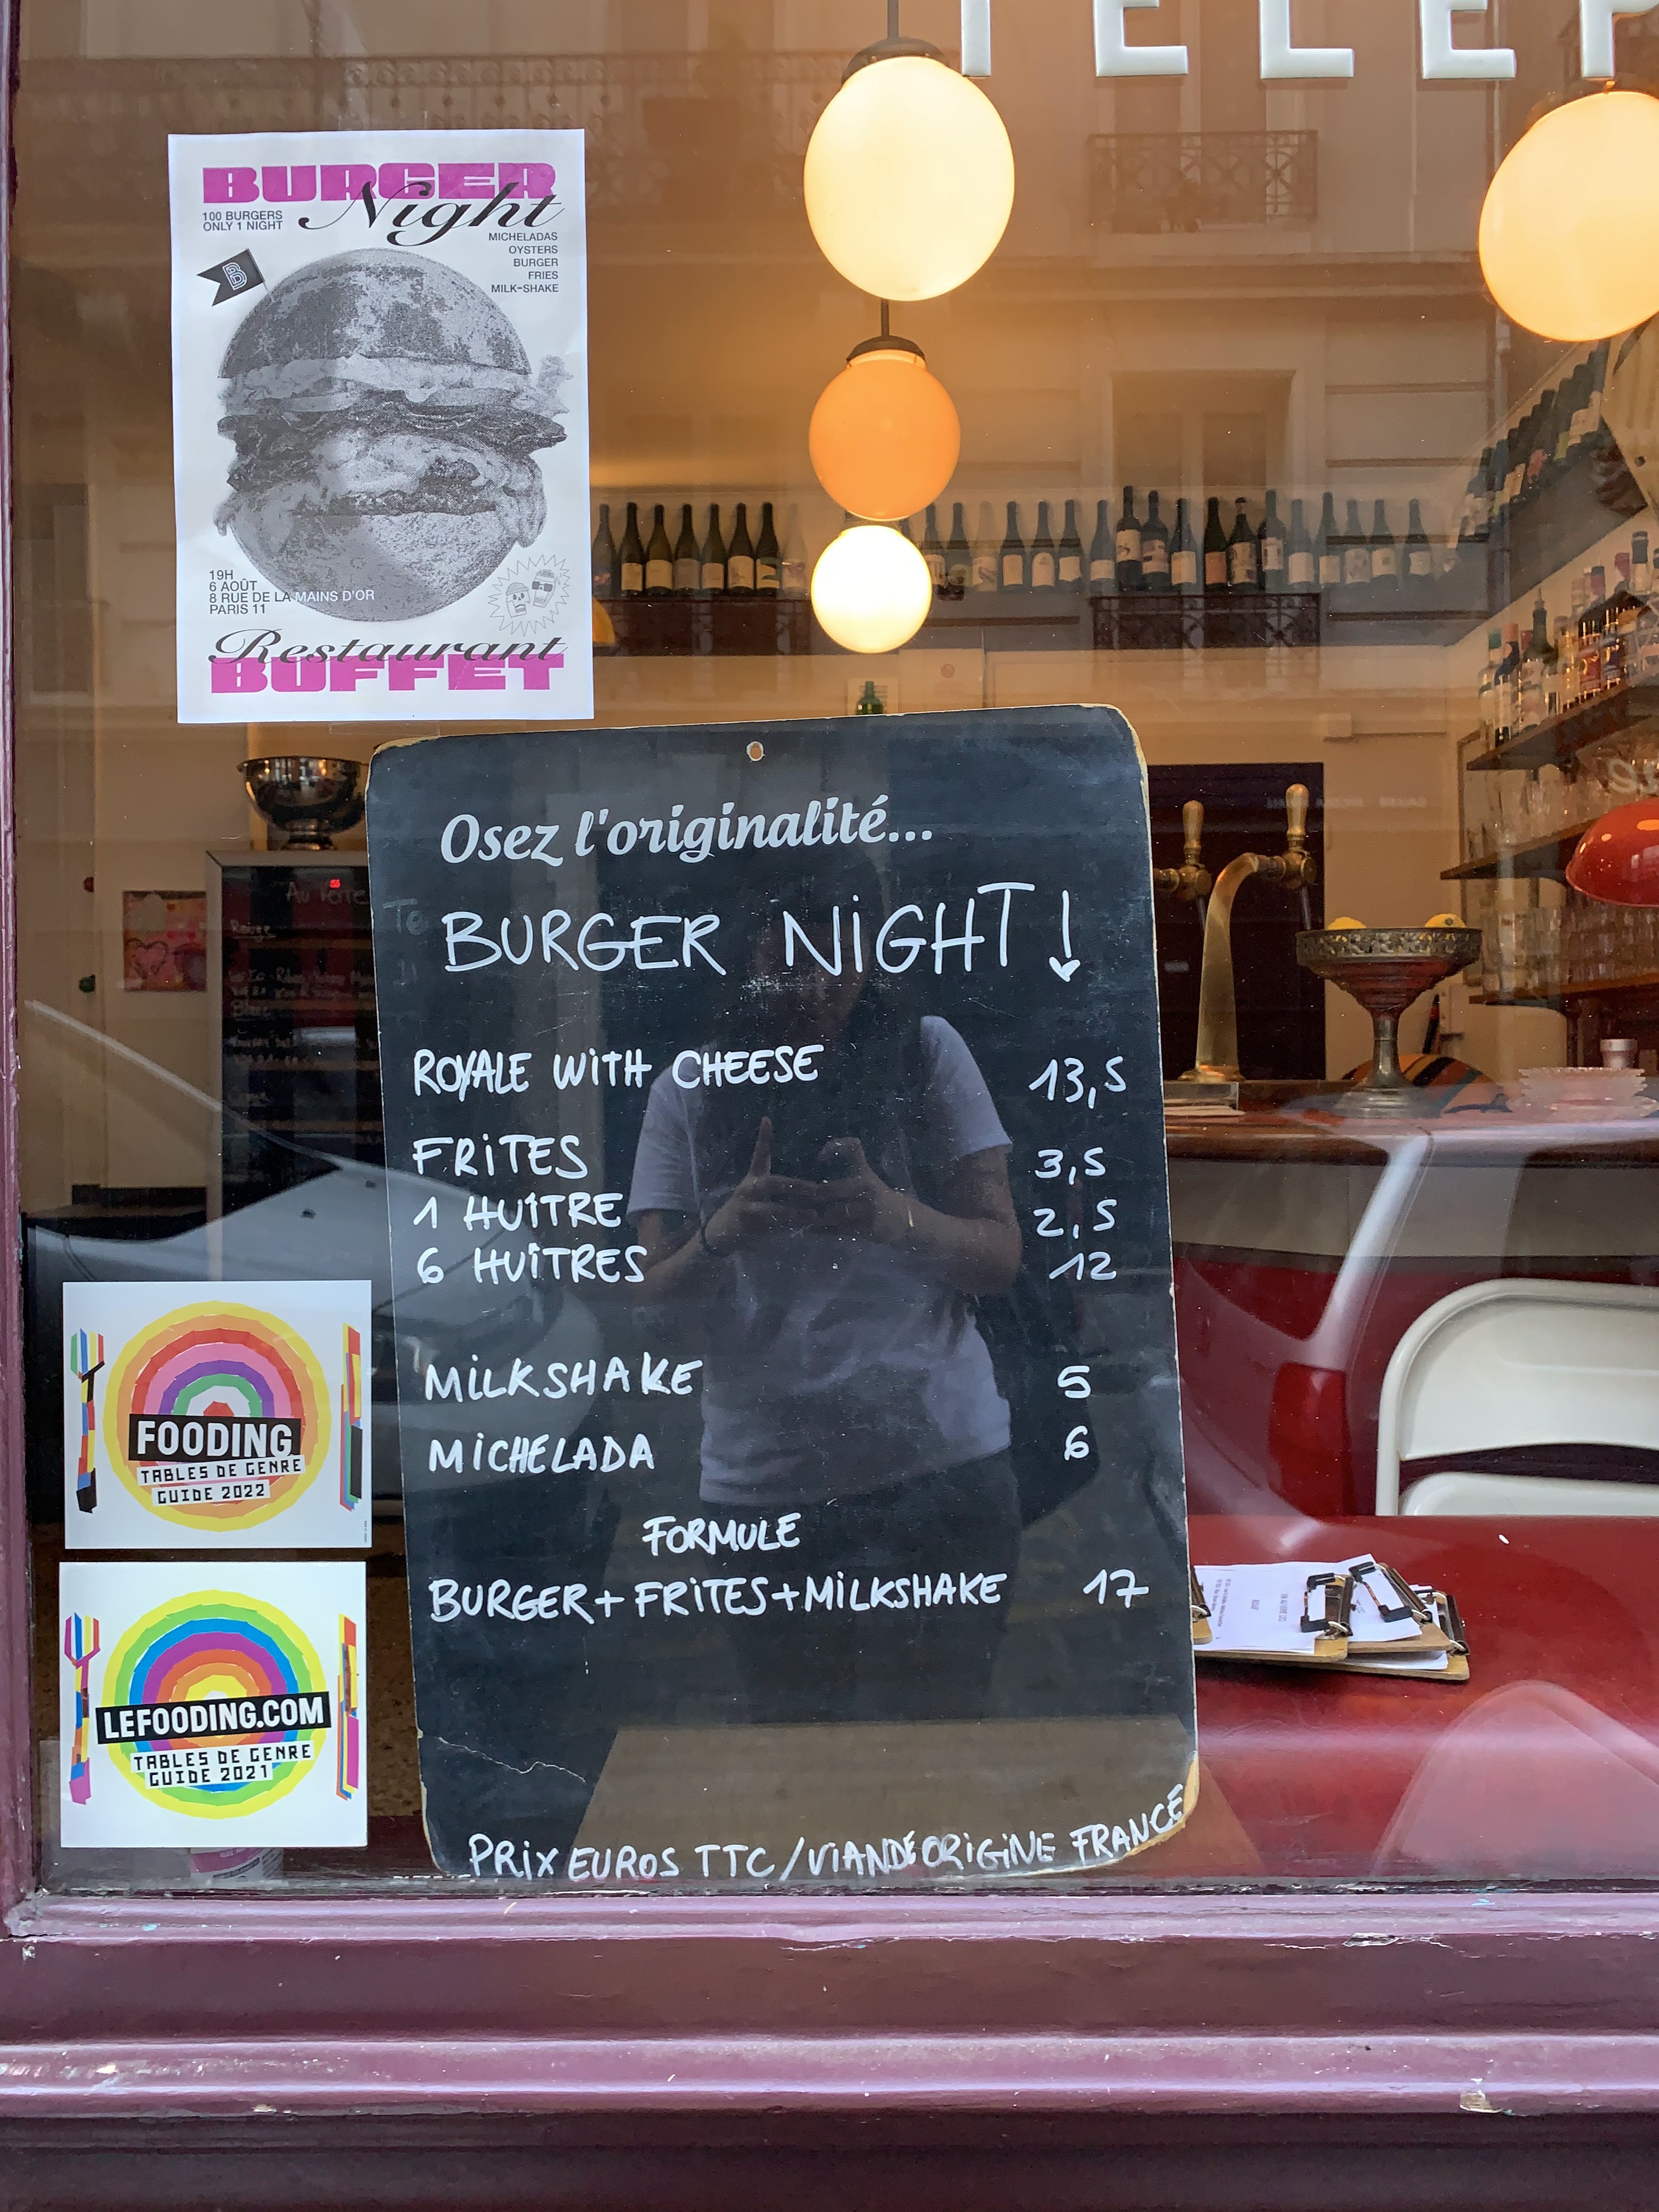 TELEP
BURGER
Night
100 BURGERS
ONLY 1 NIGHT
MICHELADAS
OYSTERS
BURGER
FRIES
MILK-SHAKE
B
19H
6 AOÛT
8 RUE DE LA MAINS D'OR
PARIS 11
Restaurant
BUFFET
Osez l'originalité...
BURGER NiGHT !
ROYALE WiTH CHEESE 13,5
FRiTES 3,5
1 HUÎTRE 2,5
6 HUÎTRES 12
MiLKSHAKE 5
MiCHELADA 6
FORMULE
BURGER+FRiTES+MiLKSHAKE 17
PRiX EUROS TTC / ViANDE ORiGiNE FRANCE
FOODING
TABLES DE GENRE
GUIDE 2022
LEFOODING.COM
TABLES DE GENRE
GUIDE 2021